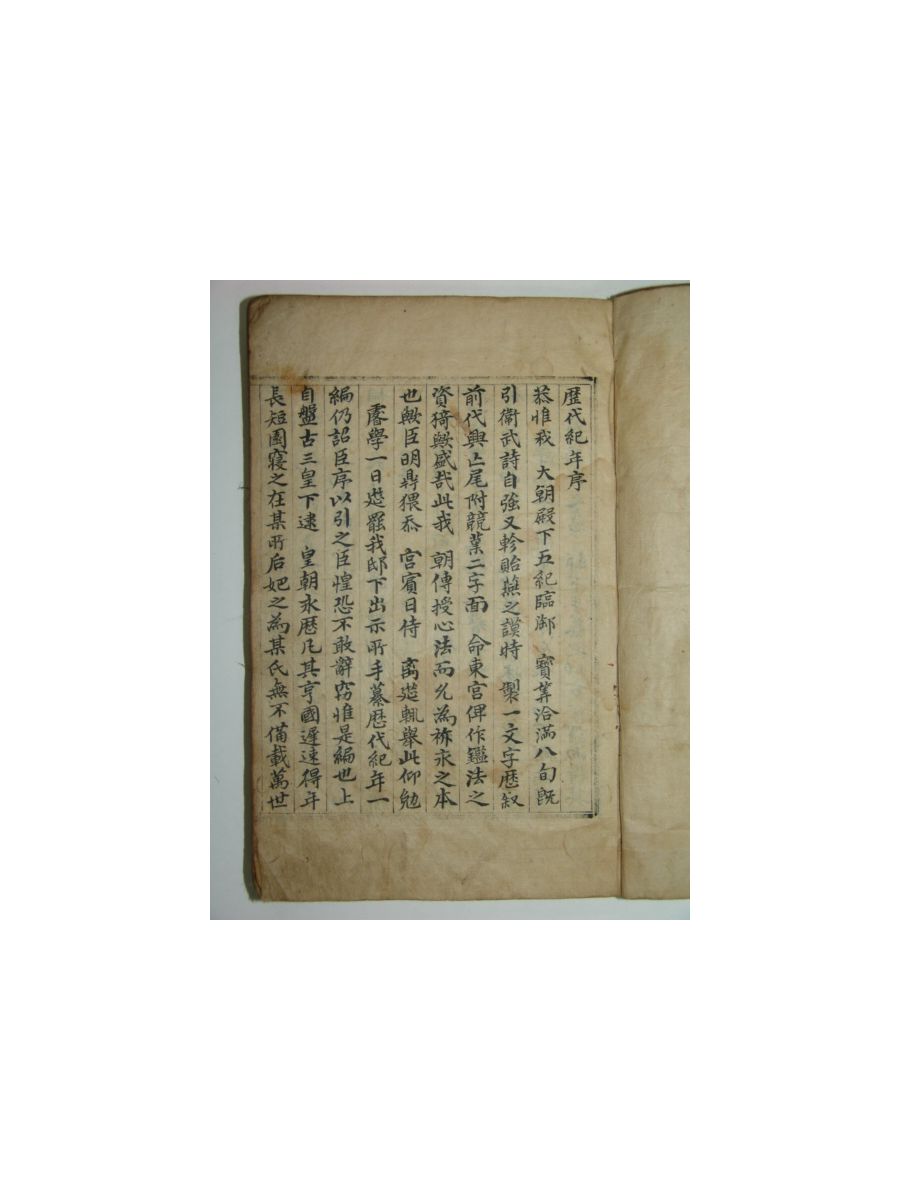 歷代紀年序
恭惟我 大朝殿下五紀臨御 寶筭洽滿八旬旣
引衛武詩自強又軫貽燕之謨特 製一文字歷叙
前代興亡尾附兢業二字面 命東宮俾作鑑法之
資猗歟盛哉此我 朝傳授心法而允為祈永之本
也歟臣明鼎猥忝 宮賓日侍 离筵輒舉此仰勉
睿學一日筵罷我邸下出示所手纂歷代紀年一
編仍詔臣序以引之臣惶恐不敢辭窃惟是編也上
自盤古三皇下逮 皇朝永曆凡其享國遲速得年
長短園寢之在某所后妃之為某氏無不備載萬世